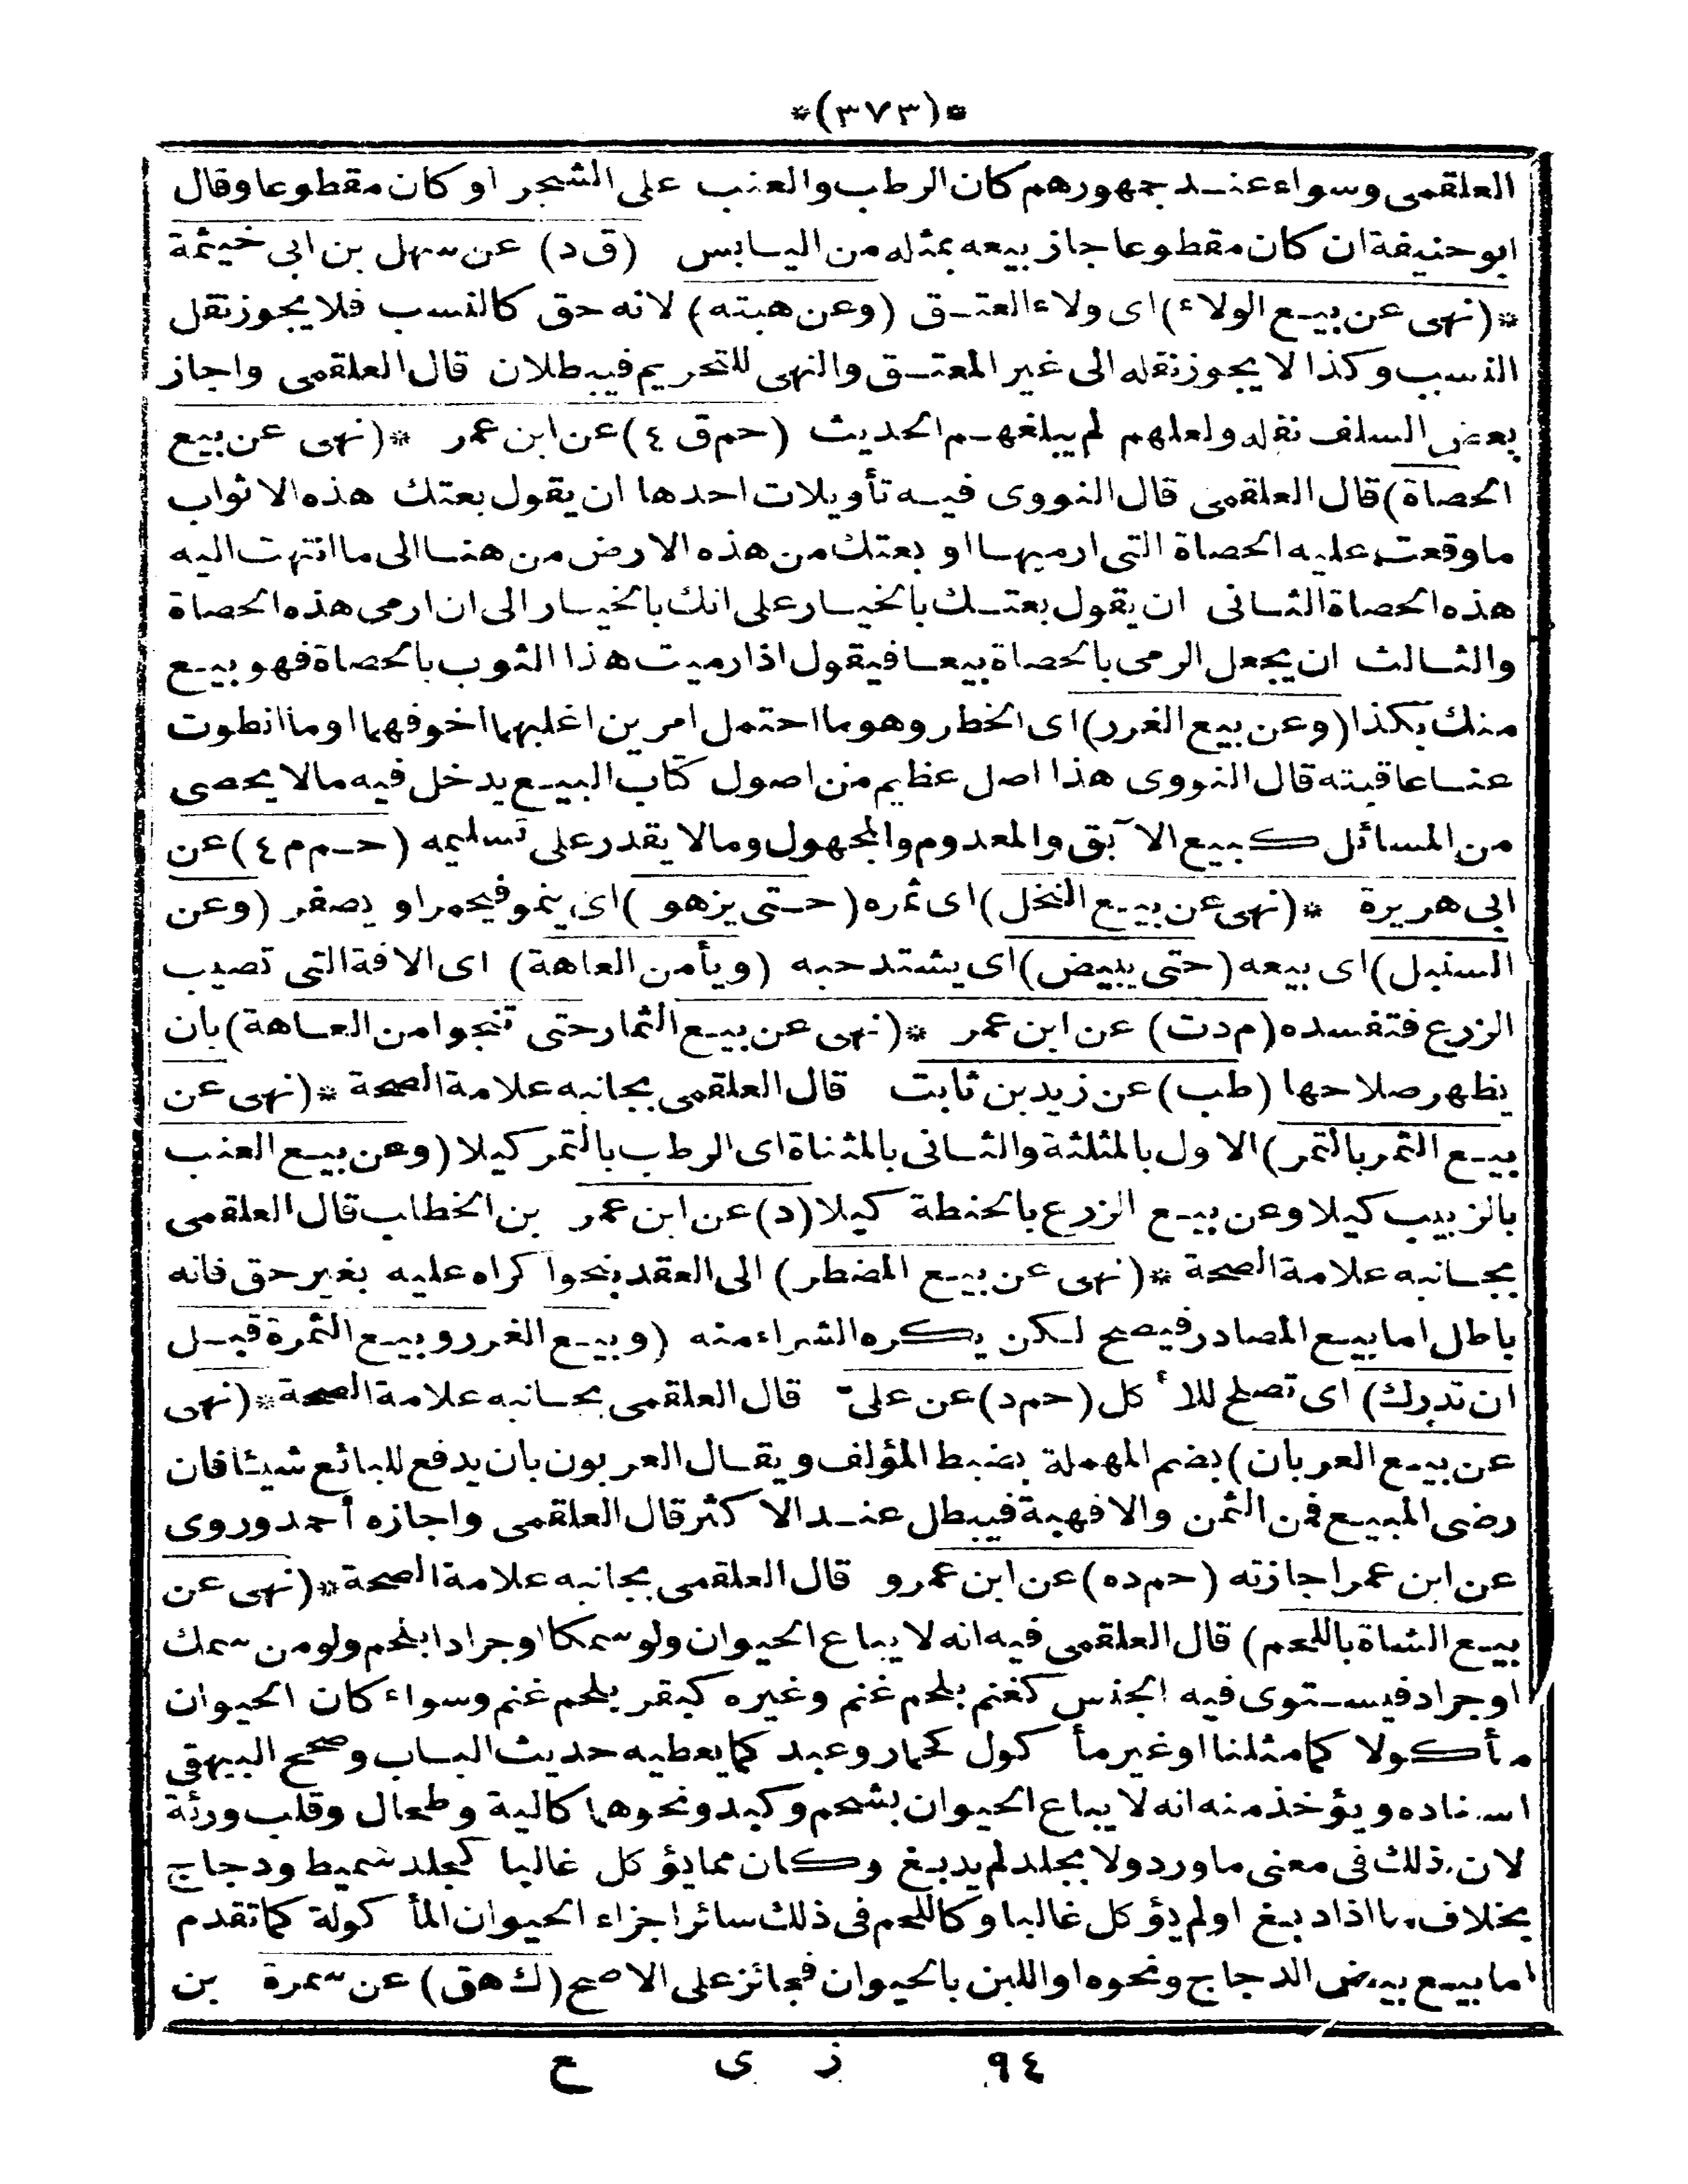 *(٣٧٣)*
العلقمى وسواء عند جمهورهم كان الرطب والعنب على الشجر او كان مقطوعا وقال
ابو حنيفة ان كان مقطوعا جاز بيعه بمثله من اليابس (ق د) عن سهل بن ابى خيثمة
*(نهى عن بيع الولاء) اى ولاء العتق (وعن هبته) لانه حق كالنسب فلا يجوز نقل
النسب وكذا لا يجوز نقله الى غير المعتق والنهى للتحريم فيبطلان قال العلقمى واجاز
بعض السلف نقله ولعلهم لم يبلغهم الحديث (حم ق ٤) عن ابن عمر *(نهى عن بيع
الحصاة) قال العلقمى قال النووى فيه تأويلات احدها ان يقول بعتك هذه الاثواب
ما وقعت عليه الحصاة التى ارميها او بعتك من هذه الارض من هنا الى ما انتهت اليه
هذه الحصاة الثانى ان يقول بعتك بالخيار على انك بالخيار الى ان ارمى هذه الحصاة
والثالث ان يجعل الرمى بالحصاة بيعا فيقول اذا رميت هذا الثوب بالحصاة فهو بيع
منك بكذا (وعن بيع الغرر) اى الخطر وهو ما احتمل امرين اغلبهما اخوفهما او ما انطوت
عنا عاقبته قال النووى هذا اصل عظيم من اصول كتاب البيع يدخل فيه ما لا يحصى
من المسائل كبيع الآبق والمعدوم والمجهول وما لا يقدر على تسليمه (حم م ٤) عن
ابى هريرة *(نهى عن بيع النخل) اى ثمره (حتى يزهو) اى ينمو فيحمر او يصفر (وعن
السنبل) اى بيعه (حتى يبيض) اى يشتد حبه (ويأمن العاهة) اى الافة التى تصيب
الزرع فتفسده (م د ت) عن ابن عمر *(نهى عن بيع الثمار حتى تنجوا من العاهة) بان
يظهر صلاحها (طب) عن زيد بن ثابت قال العلقمى بجانبه علامة الصحة *(نهى عن
بيع الثمر بالتمر) الاول بالمثلثة والثانى بالمثناة اى الرطب بالتمر كيلا (وعن بيع العنب
بالزبيب كيلا وعن بيع الزرع بالحنطة كيلا (د) عن ابن عمر بن الخطاب قال العلقمى
بجانبه علامة الصحة *(نهى عن بيع المضطر) الى العقد بنحوا كراه عليه بغير حق فانه
باطل اما بيع المصادر فيصح لكن يكره الشراء منه (وبيع الغرر وبيع الثمرة قبل
ان تدرك) اى تصلح للأكل (حم د) عن علىّ قال العلقمى بجانبه علامة الصحة *(نهى
عن بيع العربان) بضم المهملة بضبط المؤلف ويقال العربون بان يدفع للبائع شيئا فان
رضى المبيع فمن الثمن والا فهبة فيبطل عند الاكثر قال العلقمى واجازه أحمد وروى
عن ابن عمر اجازته (حم د ه) عن ابن عمرو قال العلقمى بجانبه علامة الصحة *(نهى عن
بيع الشاة باللحم) قال العلقمى فيه انه لا يباع الحيوان ولو سمكا او جرادا بلحم ولو من سمك
او جراد فيستوى فيه الجنس كغنم بلحم غنم وغيره كبقر بلحم غنم وسواء كان الحيوان
مأكولا كما مثلنا او غير مأكول كحمار وعبد كما يعطيه حديث الباب وصحح البيهقى
اسناده ويؤخذ منه انه لا يباع الحيوان بشحم وكبد ونحوها كالية وطحال وقلب ورئة
لان ذلك فى معنى ما ورد ولا بجلد لم يدبغ وكان مما يؤكل غالبا كجلد سميط ودجاج
بخلاف ما اذا دبغ او لم يؤكل غالبا وكاللحم فى ذلك سائر اجزاء الحيوان المأكولة كما تقدم
اما بيع بيض الدجاج ونحوه او اللبن بالحيوان فجائز على الاصح (ك هق) عن سمرة بن
٩٤ ز ى ع